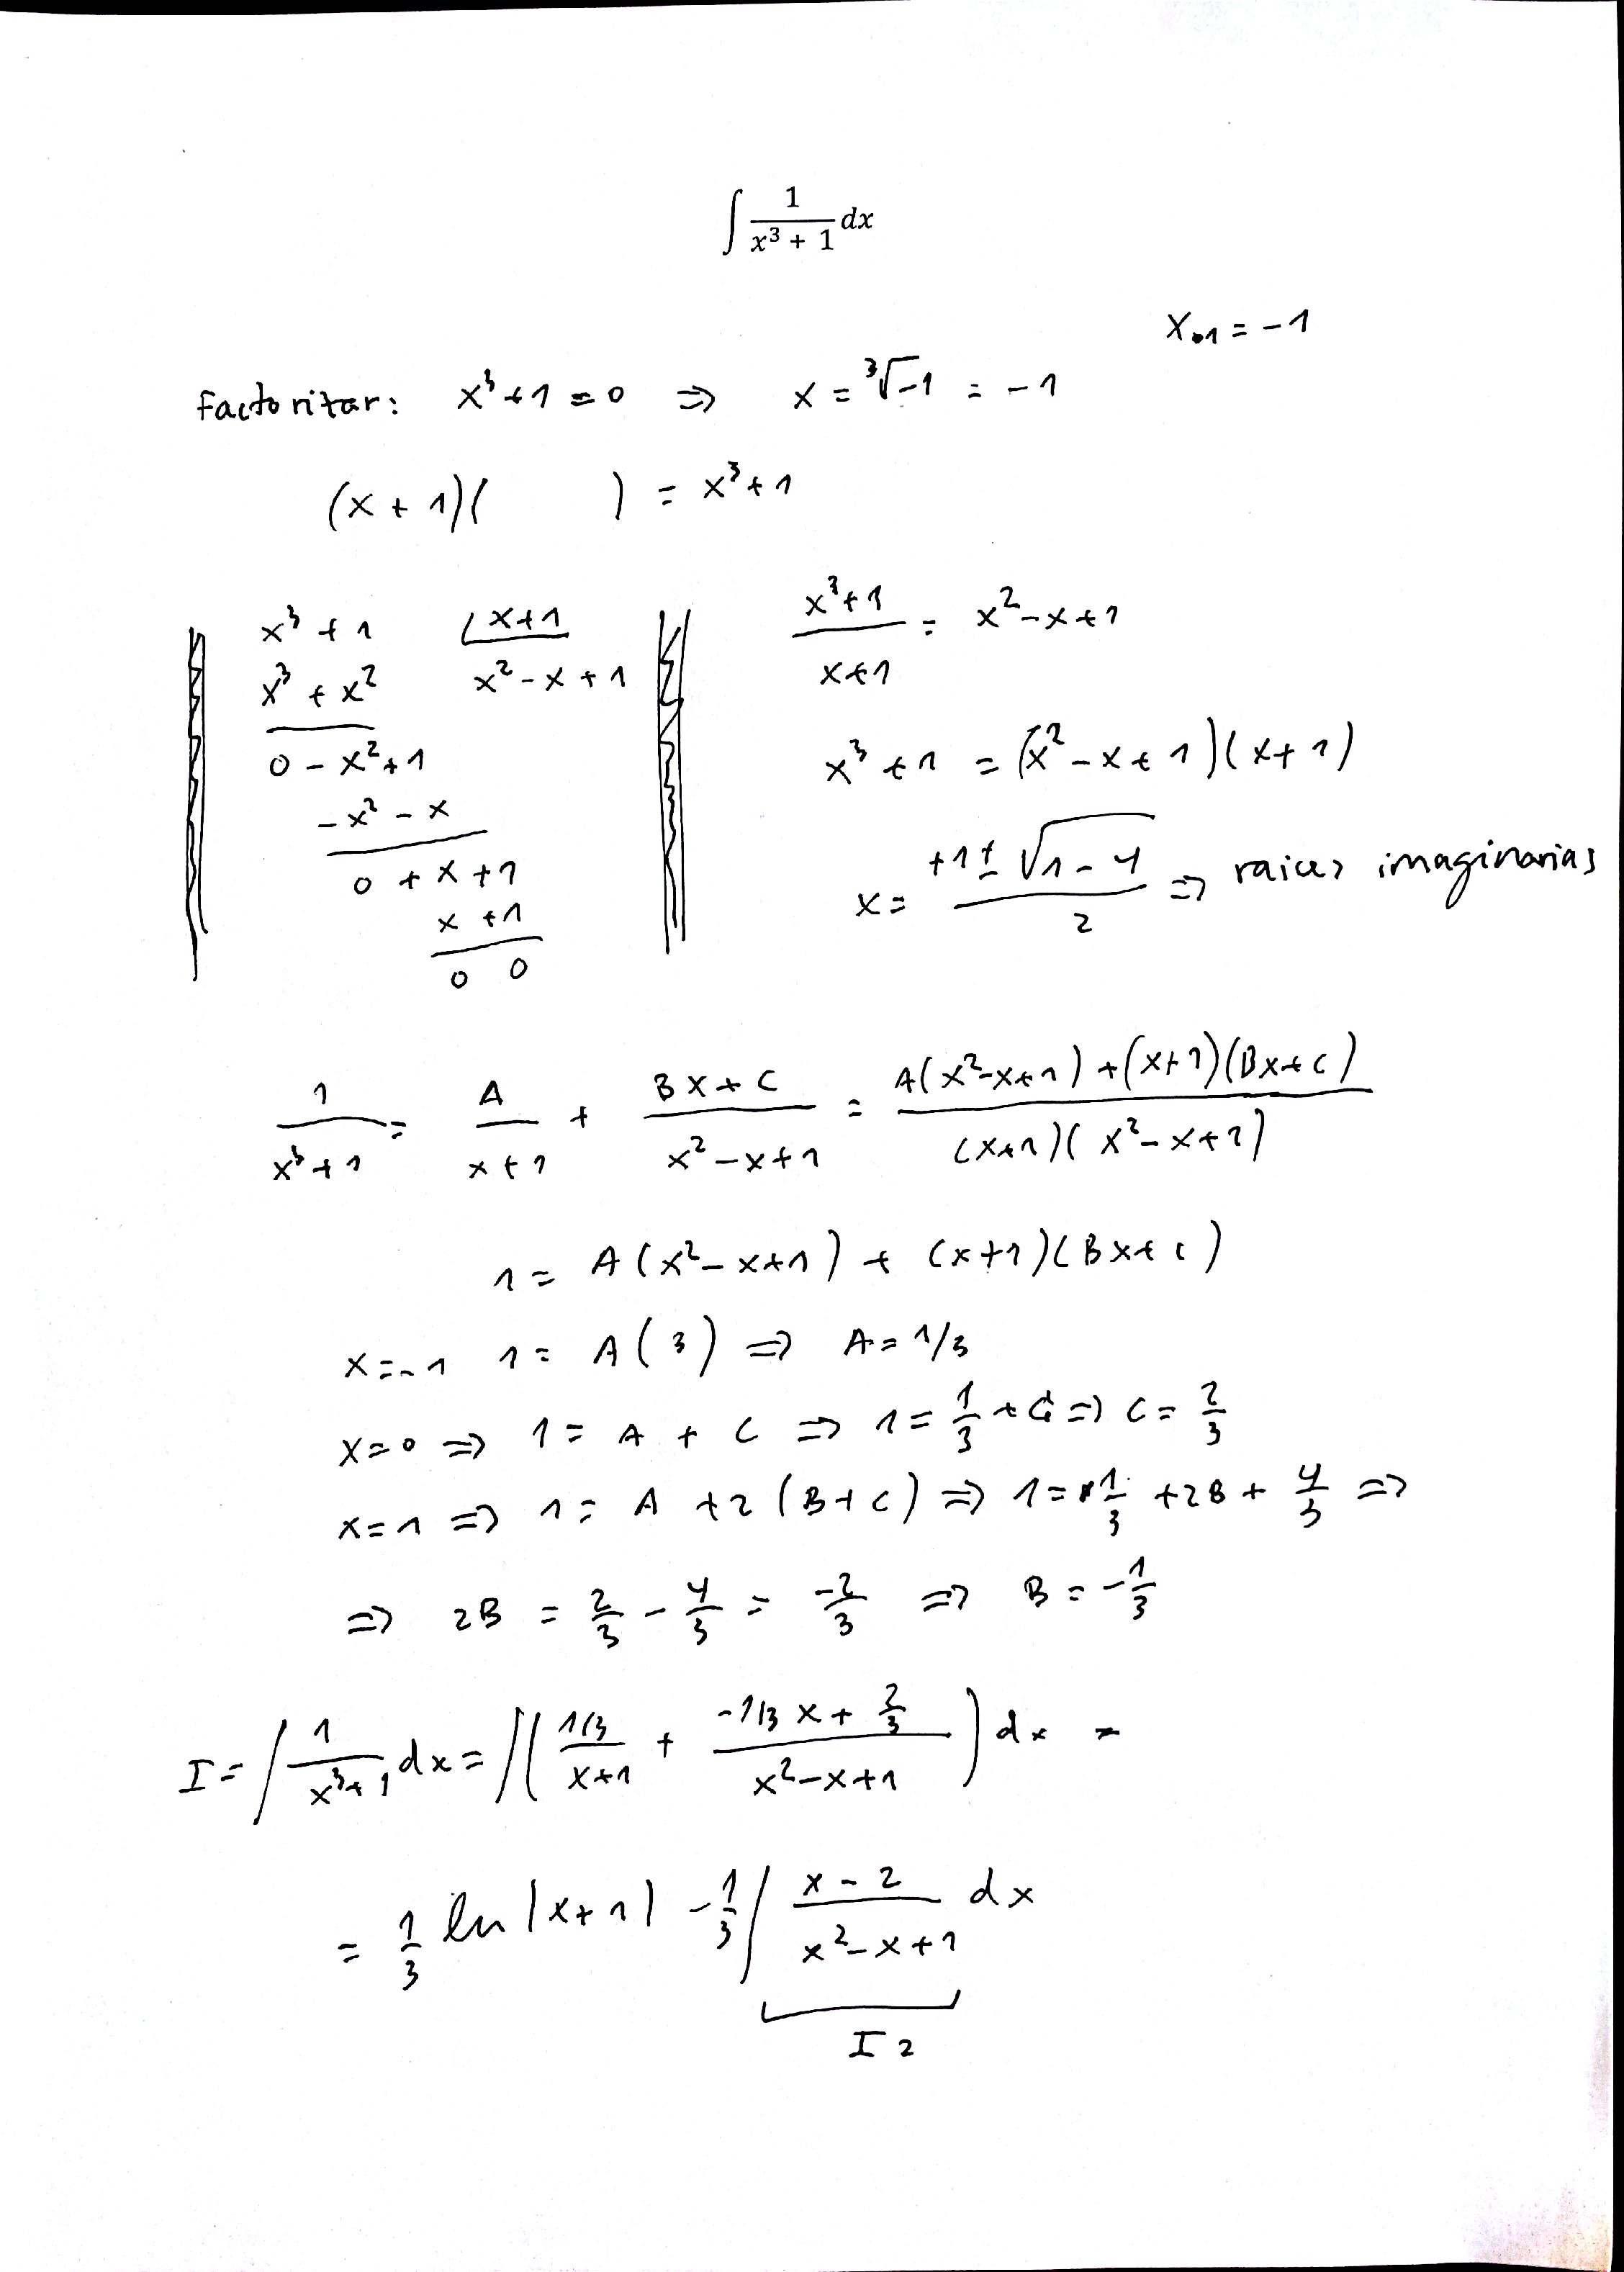 ∫ 1/(x³ + 1) dx
x₁ = -1
Factorizar: x³+1=0 ⇒ x = ³√-1 = -1
(x+1)(      ) = x³+1
x³+1 | x+1
x³+x²   x²-x+1
0-x²+1
-x²-x
0+x+1
x+1
0 0
(x³+1)/(x+1) = x²-x+1
x³+1 = (x²-x+1)(x+1)
x = (+1±√(1-4))/2 ⇒ raices imaginarias
1/(x³+1) = A/(x+1) + (Bx+C)/(x²-x+1) = (A(x²-x+1)+(x+1)(Bx+C))/((x+1)(x²-x+1))
1 = A(x²-x+1) + (x+1)(Bx+C)
x=-1 1= A(3) ⇒ A=1/3
x=0 ⇒ 1= A + C ⇒ 1= 1/3 + C ⇒ C= 2/3
x=1 ⇒ 1= A +2(B+C) ⇒ 1= 1/3 +2B + 4/3 ⇒
⇒ 2B = 2/3 - 4/3 = -2/3 ⇒ B = -1/3
I = ∫ 1/(x³+1) dx = ∫( (1/3)/(x+1) + (-1/3 x + 2/3)/(x²-x+1) ) dx =
= 1/3 ln|x+1| - 1/3 ∫ (x-2)/(x²-x+1) dx
I2